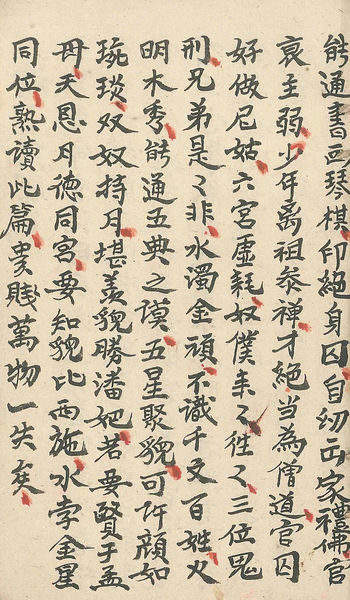 能通書画琴棋印絕身囚自幼出家禮佛官
衰主弱少年离祖参禅才絕当為僧道官囚
好做尼姑六宮虛耗奴僕来〻往〻三位鬼
刑兄弟是〻非〻水濁金頑不識千文百姓火
明木秀能通五典之謨五星聚貌可許顏如
琬琰双奴持月堪羨貌勝潘妃若要賢于孟
母天恩月德同宮要知貌比西施水孛金星
同位熟讀此篇貴賤萬物一失矣